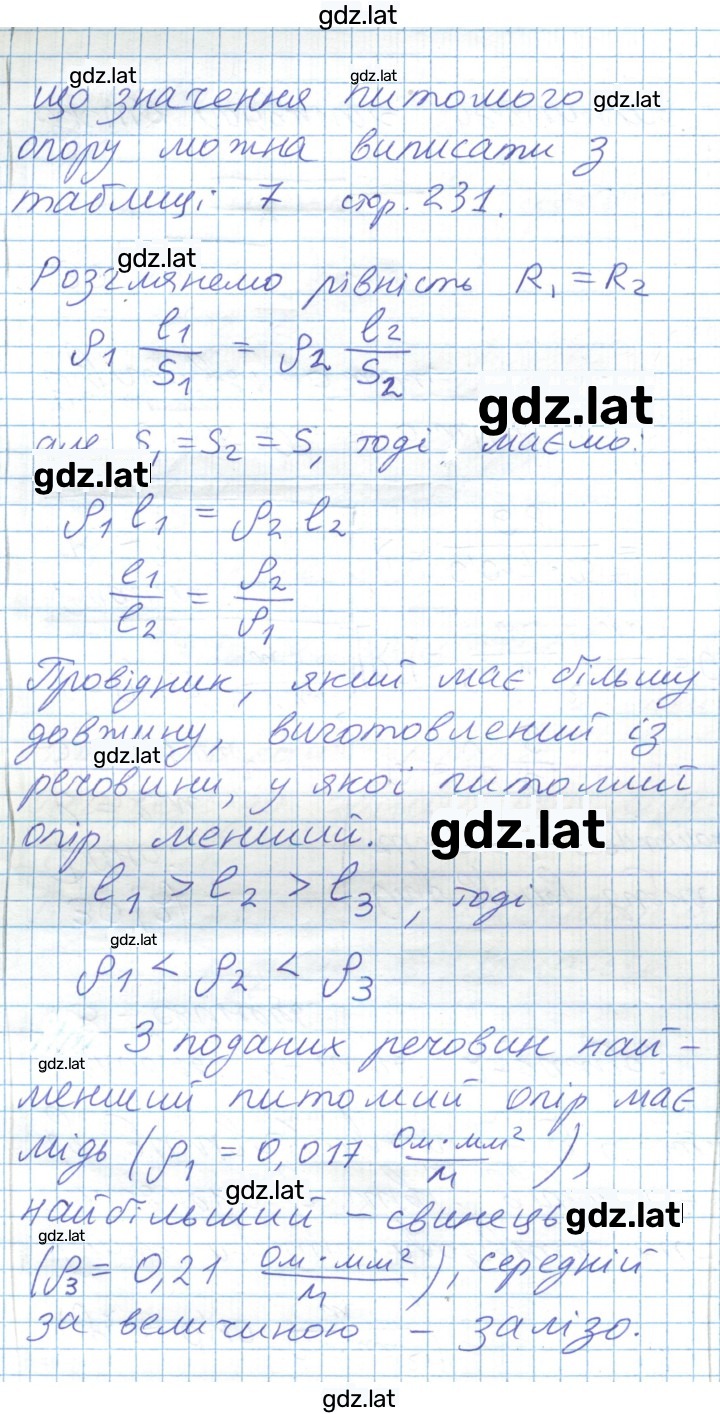 gdz.lat
gdz.lat gdz.lat
що значення питомого gdz.lat
опору можна виписати з
таблиці 7 стор. 231.
gdz.lat
Розглянемо рівність R₁ = R₂
ρ₁ l₁/S₁ = ρ₂ l₂/S₂
gdz.lat
але S₁ = S₂ = S, тоді маємо:
gdz.lat
ρ₁ l₁ = ρ₂ l₂
l₁/l₂ = ρ₂/ρ₁
Провідник, який має більшу
довжину, виготовлений із
gdz.lat
речовини, у якої питомий
опір менший. gdz.lat
l₁ > l₂ > l₃, тоді
gdz.lat
ρ₁ < ρ₂ < ρ₃
З поданих речовин най-
gdz.lat
менший питомий опір має
мідь (ρ₁ = 0,017 Ом·мм²/м),
gdz.lat
найбільший – свинець gdz.lat
gdz.lat
(ρ₃ = 0,21 Ом·мм²/м), середній
за величиною – залізо.
gdz.lat